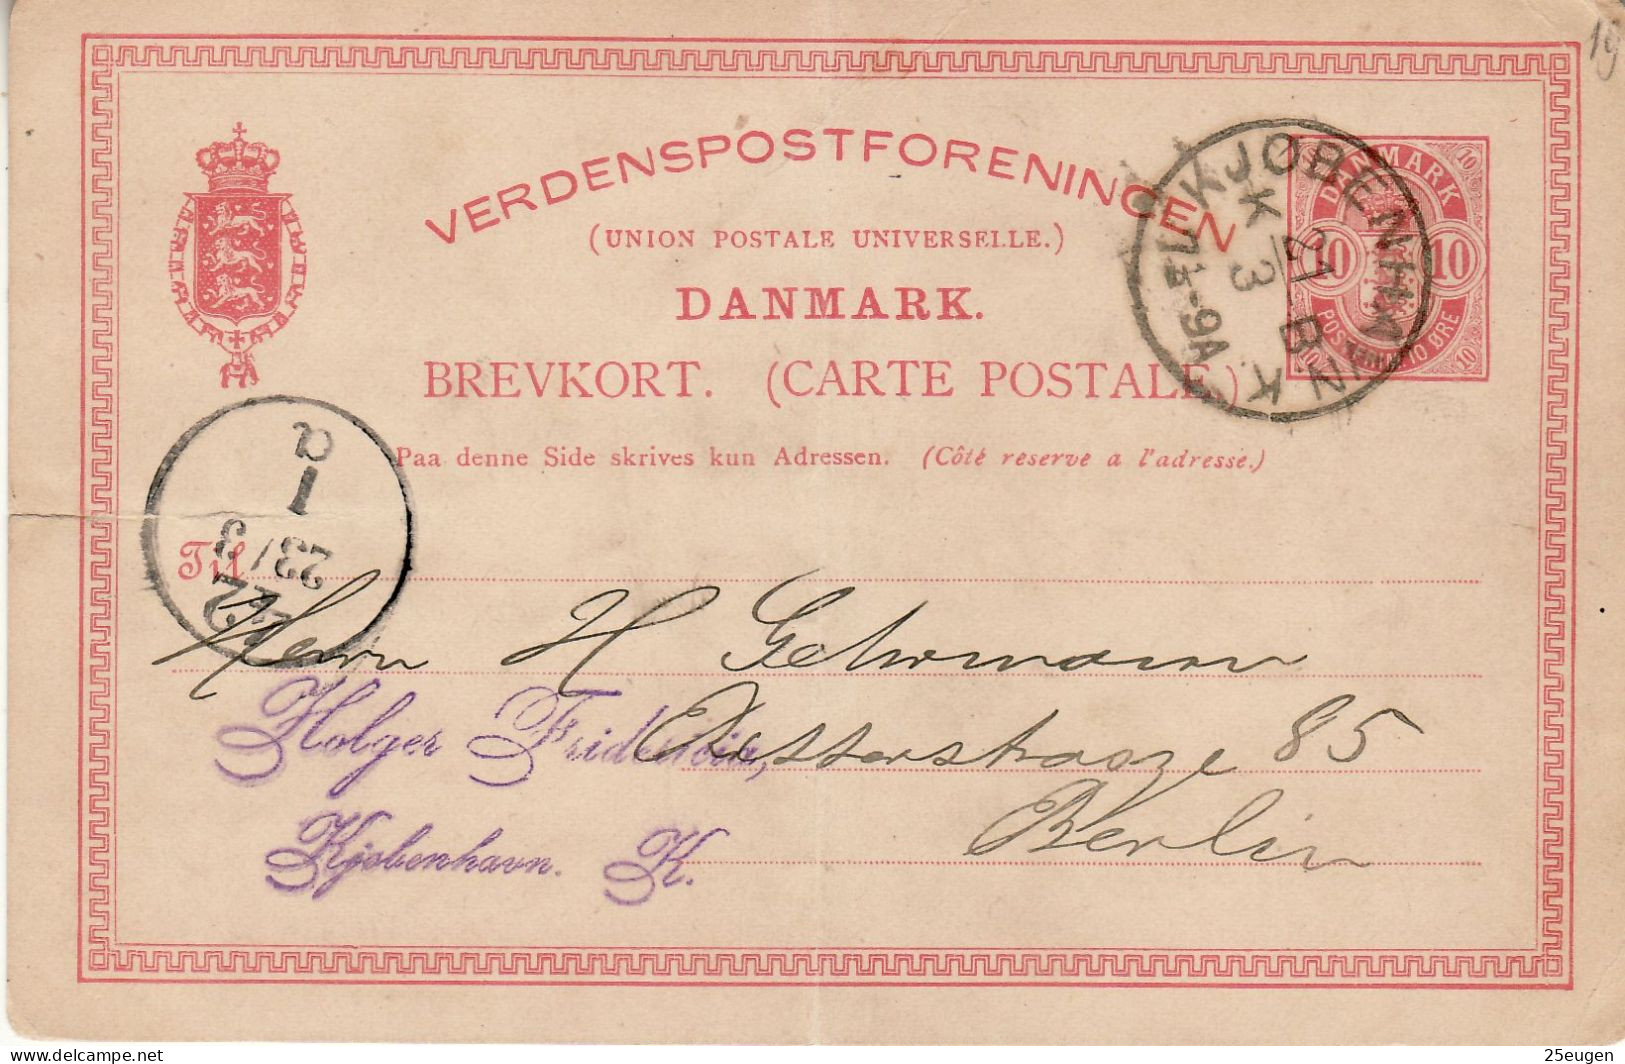 19
VERDENSPOSTFORENINGEN
(UNION POSTALE UNIVERSELLE.)
DANMARK.
BREVKORT. (CARTE POSTALE.)
Paa denne Side skrives kun Adressen. (Côté reserve a l'adresse.)
DANMARK
10 10
10 10
POSTFRIM. 10 ØRE
KJØBENHAVN K.
K
21
3
B
7½-9A
a
1
23/3
Til
Herrn H Gehrmann
Holger Fridericia,
strasze 85
Berlin
Kjøbenhavn. K.
www.delcampe.net
25eugen